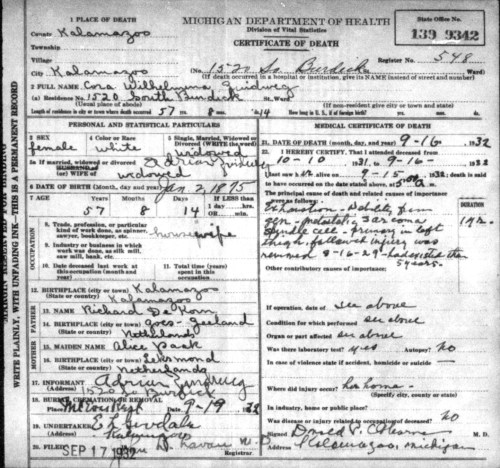 MICHIGAN DEPARTMENT OF HEALTH
Division of Vital Statistics
CERTIFICATE OF DEATH
State Office No.
139 9342
Register No. 548
1 PLACE OF DEATH
County Kalamazoo
Township
Village
City Kalamazoo
No. 1520 So. Burdick St.
(If death occurred in a hospital or institution, give its NAME instead of street and number)
2 FULL NAME Cora Wilhelmina
(a) Residence No. 1520 South Burdick St.
(Usual place of abode)
(If non-resident give city or town and state)
Length of residence in city or town where death occurred 57 yrs. 8 mos. 14 ds. How long in U. S., if of foreign birth? yrs. mos. ds.
PERSONAL AND STATISTICAL PARTICULARS
3 SEX
female
4 Color or Race
white
5 Single, Married, Widowed or Divorced (WRITE the word)
widowed
5a If married, widowed or divorced
HUSBAND of
(or) WIFE of
Adrian
widowed
6 DATE OF BIRTH (Month, day and year) Jan 2, 1875
7 AGE Years Months Days If LESS than 1 day
57 8 14
OCCUPATION
8 Trade, profession, or particular kind of work done, as spinner, sawyer, bookkeeper, etc.
housewife
9 Industry or business in which work was done, as silk mill, saw mill, bank, etc.
10 Date deceased last worked at this occupation (month and year)
11 Total time (years) spent in this occupation
12 BIRTHPLACE (city or town) Kalamazoo
(State or country) Kalamazoo
FATHER
13 NAME Richard De Korn
14 BIRTHPLACE (city or town) Goes Zeeland
(State or country) Netherlands
MOTHER
15 MAIDEN NAME Alice Paak
16 BIRTHPLACE (city or town) Leksmond
(State or country) Netherlands
17 INFORMANT Adrian
1520 So Burdick
18 BURIAL, CREMATION OR REMOVAL
Mt Ever Rest 9-19 32
19 UNDERTAKER
Kalamazoo
20 FILED SEP 17 1932
MEDICAL CERTIFICATE OF DEATH
21 DATE OF DEATH (month, day, and year) 9-16, 1932
22 I HEREBY CERTIFY, That I attended deceased from
10-10 1931, to 9-16- 1932
I last saw her alive on 9-15, 1932; death is said
to have occurred on the date stated above, at 5:00 a m.
The principal cause of death and related causes of importance were as follows:
DURATION
Exhaustion
gen. metastatic sarcoma
spindle cell - primary in left
thigh, followed injury was
removed 8-16-29 - had existed there
5 years.
Other contributory causes of importance:
If operation, date of see above
Condition for which performed see above
Organ or part affected see above
Was there laboratory test? yes Autopsy? no
In case of violence state if accident, homicide or suicide
Where did injury occur? her home
(Specify city, county or state)
In industry, home or public place?
Was injury or disease related to occupation? no
Signed Donald P. M. D.
Address Kalamazoo, Michigan
WRITE PLAINLY, WITH UNFADING INK—THIS IS A PERMANENT RECORD
MARGIN RESERVED FOR BINDING